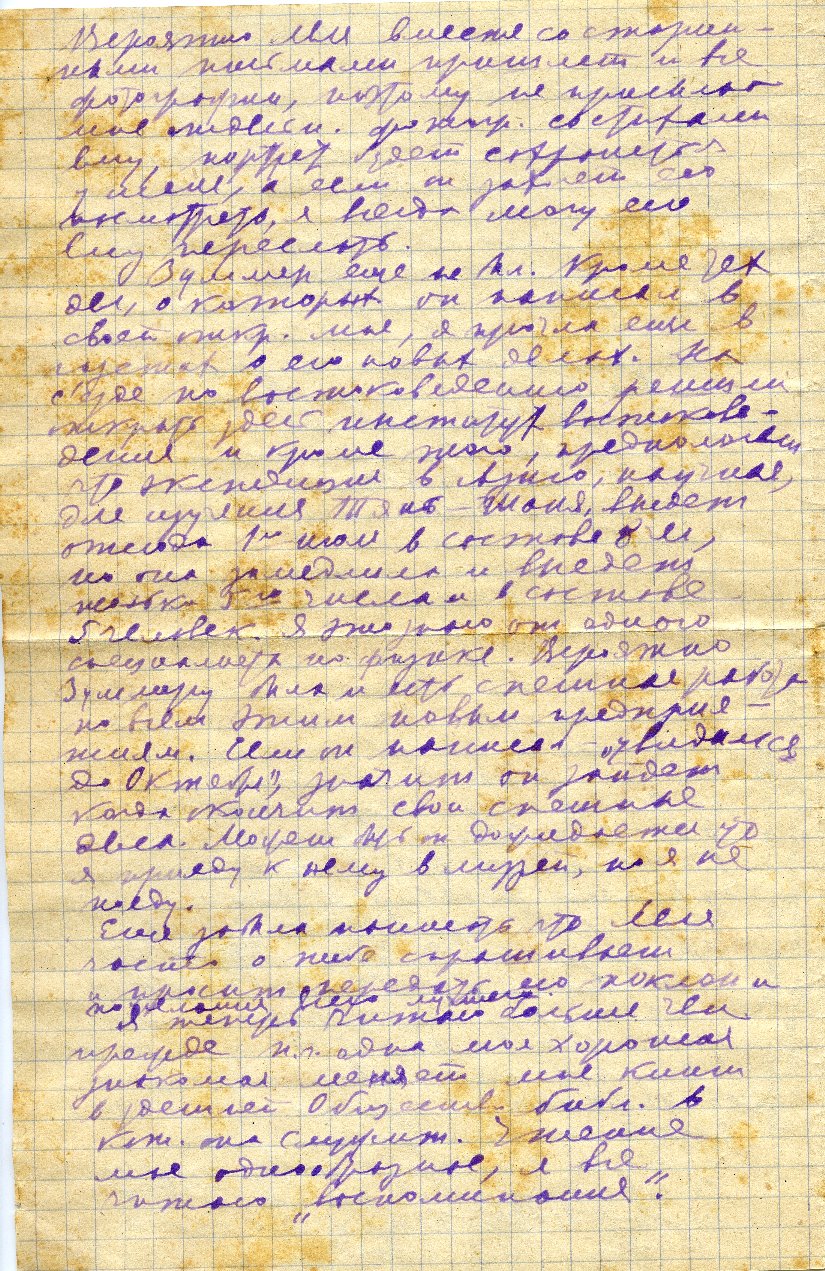 Вероятно Леля вместе со старин-
ными письмами пришлет и все
фотографии, поэтому не присылай
мне Лидесии. фотогр. с
ему портрет здесь сохранится
у меня, а если он захочет его
посмотреть, я всегда могу его
ему переслать.
Зуммер еще не был. Кроме тех
дел, о которых он написал в
своей откр. мне, я прочла еще в
газетах о его новых делах. На
с'езде по востоковедению решили
открыть здесь институт востокове-
дения и кроме того, предполагали
что экспедиция в Азию, научная,
для изучения Тянь-Шаня, выедет
отсюда 1го июля в составе 8 чел,
но она замедлила и выедет
только 5го числа и в составе
5 человек. Я это знаю от одного
специалиста по физике. Вероятно
Зуммеру была и есть спешная работа
по всем этим новым предприя-
тиям. Если он написал - "увидимся
до Октября", значит он зайдет
когда окончит свои спешные
дела. Может быть он дожидается что
я приеду к нему в музей, но я не
поеду.
Еще забыла написать что Леля
часто о тебе спрашивает
и просит передать его поклон и
пожелания всего лучшего.
Я теперь читаю больше чем
прежде п.ч. одна моя хорошая
знакомая меняет мне книги
в здешней Обществ. библ. в
кот. она служит. Чтение
мое однообразное, я все
читаю "воспоминания".